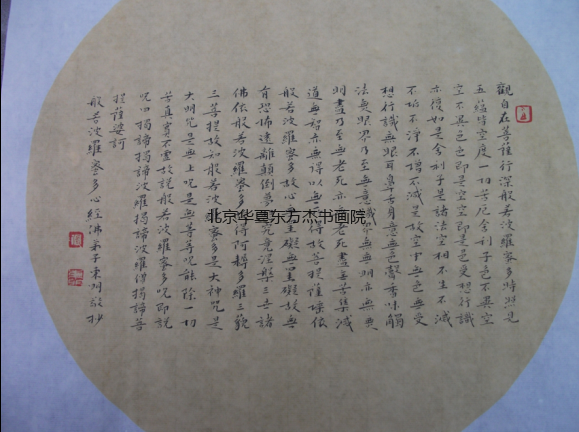 觀自在菩薩行深般若波羅蜜多時照見
五蘊皆空度一切苦厄舍利子色不異空
空不異色色即是空空即是色受想行識
亦復如是舍利子是諸法空相不生不滅
不垢不淨不增不減是故空中無色無受
想行識無眼耳鼻舌身意無色聲香味觸
法無眼界乃至無意識界無無明亦無無
明盡乃至無老死亦無老死盡無苦集滅
道無智亦無得以無所得故菩提薩埵依
般若波羅蜜多故心無罣礙無罣礙故無
有恐怖遠離顛倒夢想究竟涅槃三世諸
佛依般若波羅蜜多故得阿耨多羅三藐
三菩提故知般若波羅蜜多是大神咒是
大明咒是無上咒是無等等咒能除一切
苦真實不虛故說般若波羅蜜多咒即說
咒曰揭諦揭諦波羅揭諦波羅僧揭諦菩
提薩婆訶
般若波羅蜜多心經佛弟子東明敬抄
北京华夏东方杰书画院